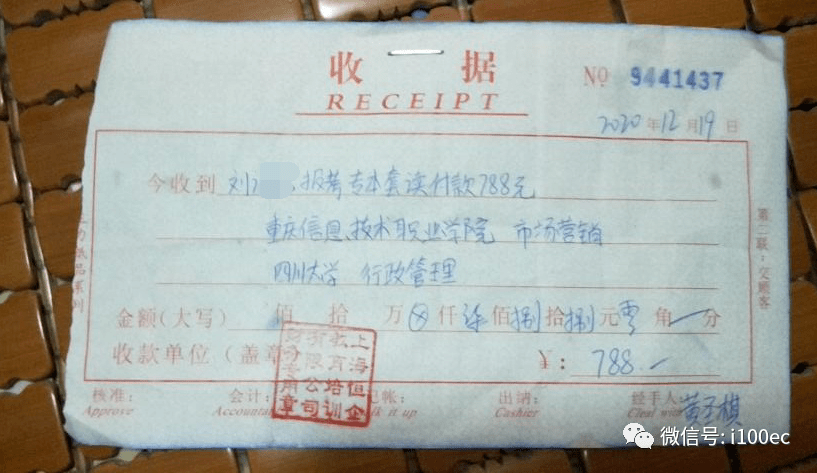 收 据
RECEIPT
NO 9441437
2020 年 12 月 19 日
今收到 刘 报考专本套读付款788元
重庆信息技术职业学院 市场营销
四川大学 行政管理
金额(大写) 佰 拾 万 ⊗ 仟 柒 佰 捌 拾 捌 元 零 角 一 分
收款单位(盖章) ¥: 788.—
上海恒企
教育培训
有限公司
财务专用章
核准: 会计: 记帐: 出纳: 经手人:
Approve Accounta k it up Cashier Cleal with
第二联:交顾客
品系列
微信号: i100ec